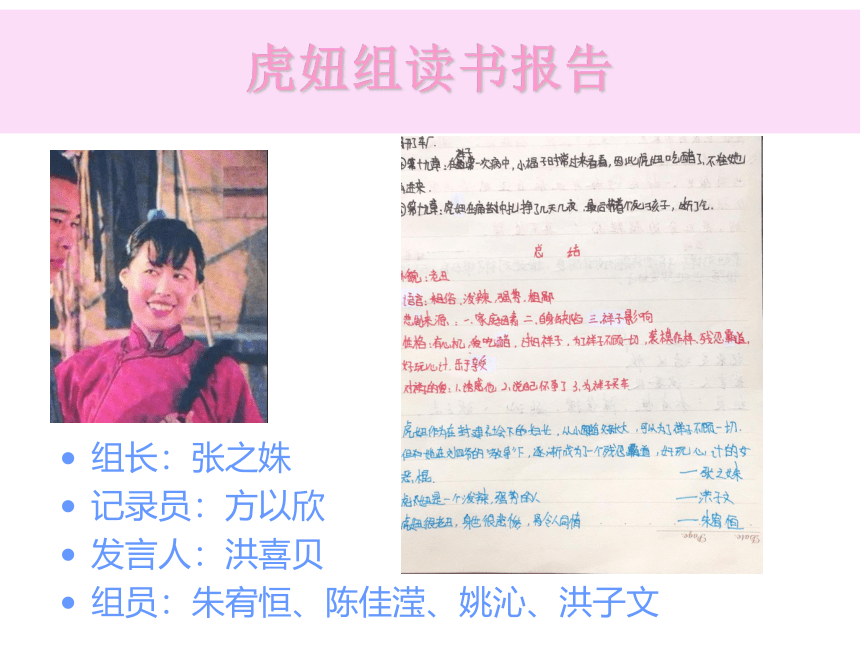 虎妞组读书报告
①第十九章:在祥子第一次病中,小福子时常过来看看,因此虎妞吃醋了,不准她
进来.
①第十九章:虎妞在痛苦中扎挣了几天几夜.最后带着个死了孩子,断了气.
总 结
外貌:老丑
语言:粗俗、泼辣、强势、粗鄙
悲剧来源:一.家庭因素 二.自身缺陷 三.祥子影响
性格:有心机,爱吃醋,
好玩心计.乐于享受
对祥子的爱:1.诱惑他 2.说自己怀孕了 3.为祥子买车
虎妞作为在封建社会下的妇女,从小
可以为了祥子不顾一切.
但和她在刘四爷的"教导"下,逐渐成为了一个残忍霸道,好玩心计的女
恶棍.
——张之姝
虎妞是一个泼辣,强势的人
——洪子文
虎妞很老丑,身世很悲惨,
——朱宥恒
Date. Page.
组长:张之姝
记录员:方以欣
发言人:洪喜贝
组员:朱宥恒、陈佳滢、姚沁、洪子文